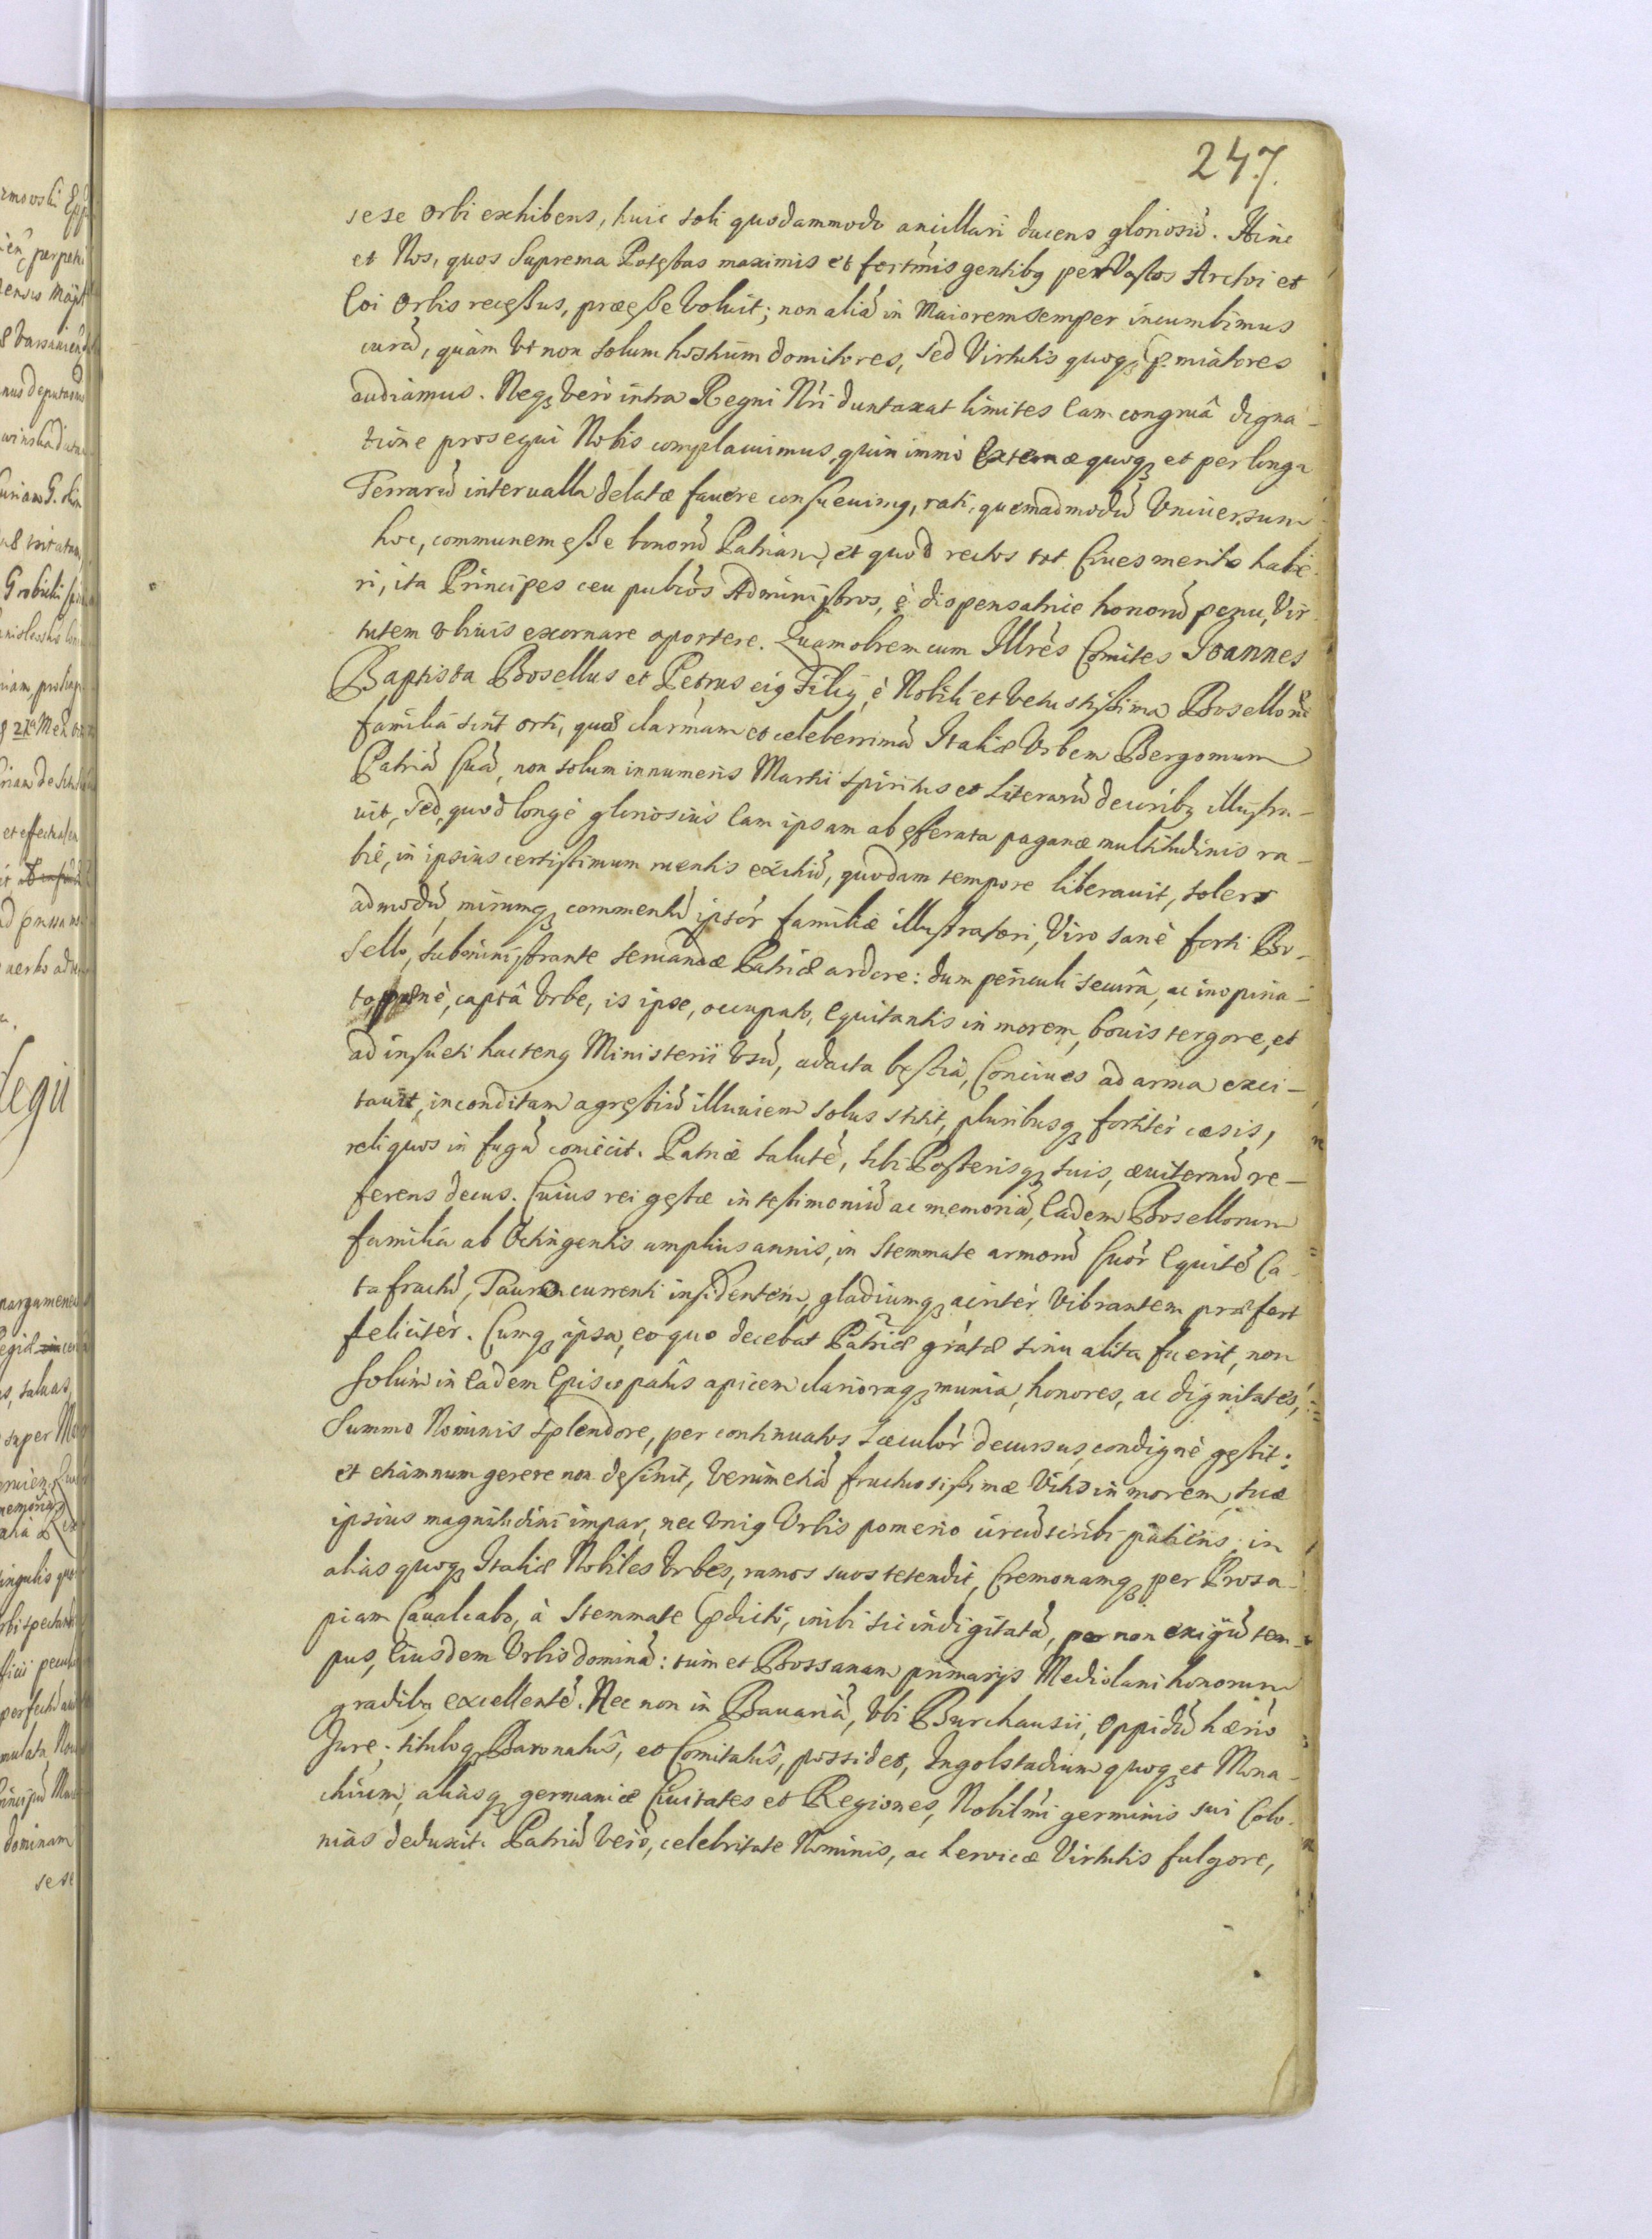 247.
sese Orbi exhibens, huic soli quodammodo ancillari ducens gloriosũ. Hinc
et Nos, quos Suprema Potestas maximis et fortmis gentibq per Vastos Arctoi et
Eoi Orbis recessus, præesse voluit; non aliã in Maiorem semper incumbimus
curã, quàm Vt non solum hostium domitores, sed Virtutis quoqꝫ p̃miatores
audiamus. Neqꝫ verò intra Regni Nri duntaxat limites Eam congruâ digna-
tione prosequi Nobis complacuimus, quin immò Externæ quoqꝫ et per longa
Terrarũ interualla delatæ fauere consueuimq, rati, quemadmodũ Vniuersum
hoc, communem esse bonorũ Patriam, et quod rectos tot Ciues merito habe-
ri, ita Principes ceu publcos Administros, è dispensatrice honorũ penu, Vir-
tutem vltiuis exornare oportere. Quamobrem cum Illres Comites Joannes
Baptista Bosellus et Petrus eiq Filiq, è Nobili et Vetustissima Bosellorũ
familia sint orti, quæ clarmam et celeberrimã Italiæ Vrbem Bergomum
Patriã suã, non solum innumeris Martii spiritus et Literarũ decoribq illustra-
uit, sed, quod longè gloriosius Eam ipsam ab efferata paganæ multitudinis ra-
bie, in ipsius certissimum ruentis exitiũ, quodam tempore liberauit, solers
admodũ, mirumqꝫ commentũ ipsor familiæ illustratori, Viro sanè forti Bo-
sello, subministrante seruandæ Patriæ ardore: dum periculi securâ, ac inopina-
to, penè, captâ Vrbe, is ipse, occupato, Equitantis in morem, bouis tergore, et
ad insueti hactenq Ministerii Vsũ, adacta bestiâ, Conciues ad arma exci-
tauit, inconditam agrestiũ illuuiem solus stitit, pluribusqꝫ fortiter cæsis,
reliquos in fugã coniecit. Patriæ salutẽ, sibi Posterisqꝫ suis, æuiternũ re-
ferens decus. Cuius rei gestæ in testimoniũ ac memoriã, Eadem Bosellorum
familia ab Octingentis amplius annis, in Stemmate armorũ suor Equitẽ Ca-
tafractũ, Tauro currenti insidentem, gladiumqꝫ acriter Vibrantem præfert
feliciter. Cumqꝫ ipsa, eo quo decebat Patriæ gratæ sinu alita fuerit, non
solum in Eadem Episcopatus apicem clarioraqꝫ munia, honores, ac dignitates,
Summo Nominis splendore, per continuatos sæculor decursus, condignè gessit;
et etiamnum gerere non desinit, Verum etiã fructuosissimæ Vitis in morem, suæ
ipsius magnitudini impar, nec Vniq Vrbis pomerio circũscribi patiens, in
alias quoqꝫ Italiæ Nobiles Vrbes, ramos suos tetendit, Cremonamqꝫ per Prosa-
piam Caualcabo, à Stemmate p̃dicto, inibi sic indigitatã, per non exiguũ tem-
pus, Eiusdem Vrbis dominã: tum et Bossanam primarijs Mediolani honorum
gradibq excellentẽ. Nec non in Bauariã, Vbi Burchausii, Oppidũ hærio
Jure, tituloq Baronatûs, et Comitatûs, possidet, Ingolstadium quoqꝫ et Mona-
chium, aliasqꝫ germaniæ Ciuitates et Regiones, Nobilmi germinis sui Colo-
nias deduxit. Patriũ verò, celebritate Nominis, ac heroicæ Virtutis fulgore,